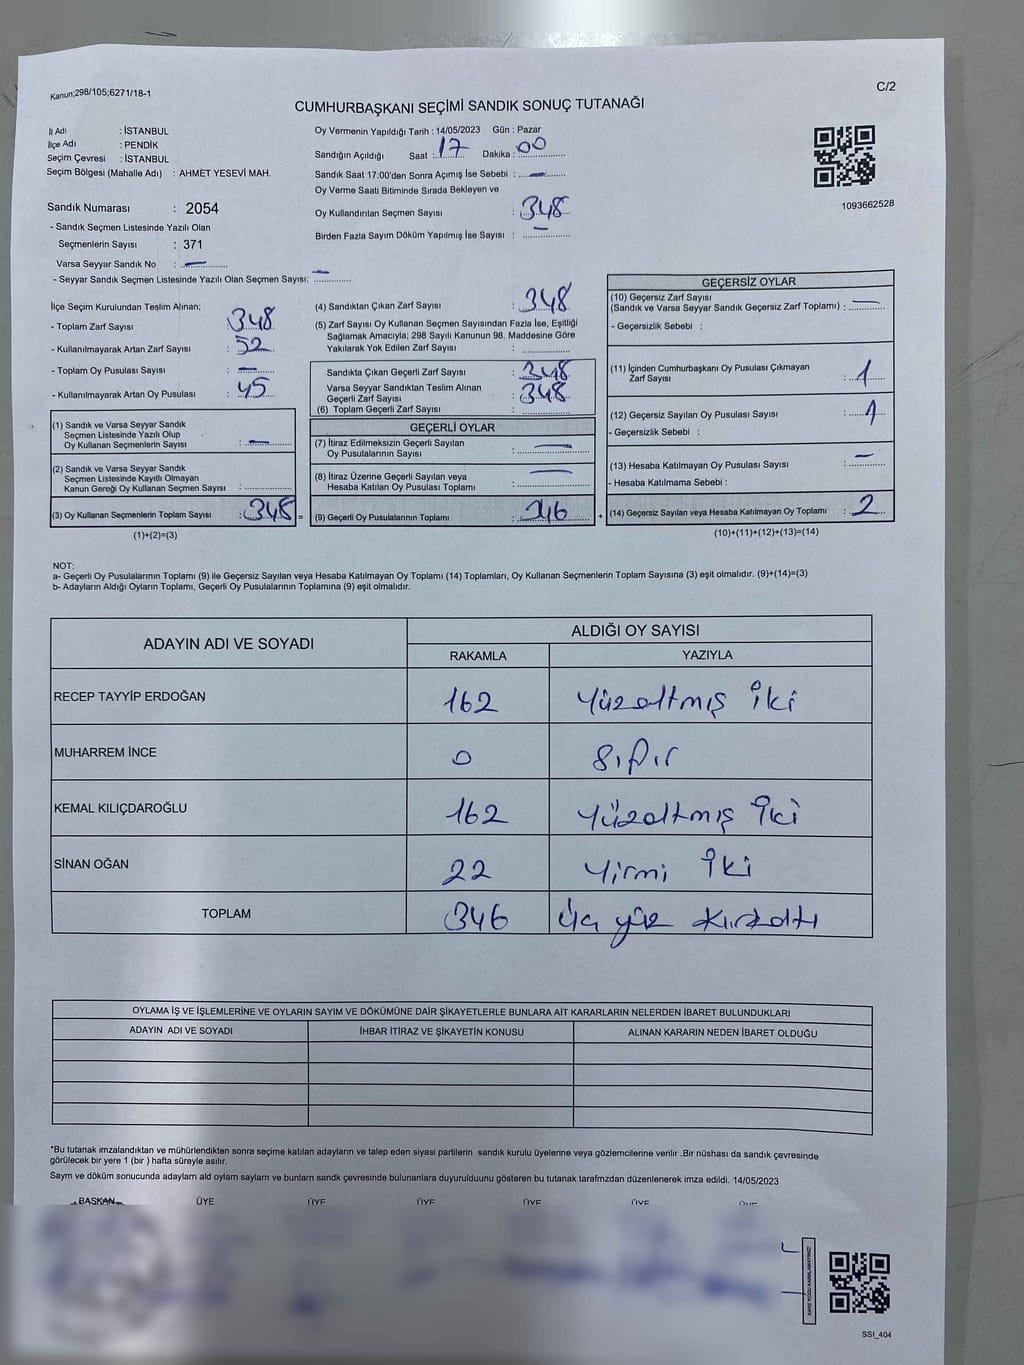 Kanun;298/105;6271/18-1
C/2
CUMHURBAŞKANI SEÇİMİ SANDIK SONUÇ TUTANAĞI
İl Adı : İSTANBUL
İlçe Adı : PENDİK
Seçim Çevresi : İSTANBUL
Seçim Bölgesi (Mahalle Adı) : AHMET YESEVİ MAH.
Sandık Numarası : 2054
- Sandık Seçmen Listesinde Yazılı Olan
Seçmenlerin Sayısı : 371
Varsa Seyyar Sandık No : —
- Seyyar Sandık Seçmen Listesinde Yazılı Olan Seçmen Sayısı: —
Oy Vermenin Yapıldığı Tarih : 14/05/2023 Gün : Pazar
Sandığın Açıldığı Saat : 17 Dakika : 00
Sandık Saat 17:00'den Sonra Açımış İse Sebebi : —
Oy Verme Saati Bitiminde Sırada Bekleyen ve
Oy Kullandırılan Seçmen Sayısı : 348
Birden Fazla Sayım Döküm Yapılmış İse Sayısı : —
1093662528
İlçe Seçim Kurulundan Teslim Alınan;
- Toplam Zarf Sayısı : 348
- Kullanılmayarak Artan Zarf Sayısı : 52
- Toplam Oy Pusulası Sayısı : —
- Kullanılmayarak Artan Oy Pusulası : 45
(1) Sandık ve Varsa Seyyar Sandık
Seçmen Listesinde Yazılı Olup
Oy Kullanan Seçmenlerin Sayısı : —
(2) Sandık ve Varsa Seyyar Sandık
Seçmen Listesinde Kayıtlı Olmayan
Kanun Gereği Oy Kullanan Seçmen Sayısı :
(3) Oy Kullanan Seçmenlerin Toplam Sayısı : 348 =
(1)+(2)=(3)
(4) Sandıktan Çıkan Zarf Sayısı : 348
(5) Zarf Sayısı Oy Kullanan Seçmen Sayısından Fazla İse, Eşitliği
Sağlamak Amacıyla; 298 Sayılı Kanunun 98. Maddesine Göre
Yakılarak Yok Edilen Zarf Sayısı :
Sandıkta Çıkan Geçerli Zarf Sayısı : 348
Varsa Seyyar Sandıktan Teslim Alınan
Geçerli Zarf Sayısı : 348
(6) Toplam Geçerli Zarf Sayısı :
GEÇERLİ OYLAR
(7) İtiraz Edilmeksizin Geçerli Sayılan
Oy Pusulalarının Sayısı : —
(8) İtiraz Üzerine Geçerli Sayılan veya
Hesaba Katılan Oy Pusulası Toplamı : —
(9) Geçerli Oy Pusulalarının Toplamı : 346 +
GEÇERSİZ OYLAR
(10) Geçersiz Zarf Sayısı
(Sandık ve Varsa Seyyar Sandık Geçersiz Zarf Toplamı) : —
- Geçersizlik Sebebi :
(11) İçinden Cumhurbaşkanı Oy Pusulası Çıkmayan
Zarf Sayısı : 1
(12) Geçersiz Sayılan Oy Pusulası Sayısı : 1
- Geçersizlik Sebebi :
(13) Hesaba Katılmayan Oy Pusulası Sayısı : —
- Hesaba Katılmama Sebebi :
(14) Geçersiz Sayılan veya Hesaba Katılmayan Oy Toplamı : 2
(10)+(11)+(12)+(13)=(14)
NOT:
a- Geçerli Oy Pusulalarının Toplamı (9) ile Geçersiz Sayılan veya Hesaba Katılmayan Oy Toplamı (14) Toplamları, Oy Kullanan Seçmenlerin Toplam Sayısına (3) eşit olmalıdır. (9)+(14)=(3)
b- Adayların Aldığı Oyların Toplamı, Geçerli Oy Pusulalarının Toplamına (9) eşit olmalıdır.
ADAYIN ADI VE SOYADI ALDIĞI OY SAYISI
RAKAMLA YAZIYLA
RECEP TAYYİP ERDOĞAN 162 Yüzaltmış iki
MUHARREM İNCE 0 Sıfır
KEMAL KILIÇDAROĞLU 162 Yüzaltmış iki
SİNAN OĞAN 22 Yirmi iki
TOPLAM 346 Üç yüz kırkaltı
OYLAMA İŞ VE İŞLEMLERİNE VE OYLARIN SAYIM VE DÖKÜMÜNE DAİR ŞİKAYETLERLE BUNLARA AİT KARARLARIN NELERDEN İBARET BULUNDUKLARI
ADAYIN ADI VE SOYADI İHBAR İTİRAZ VE ŞİKAYETİN KONUSU ALINAN KARARIN NEDEN İBARET OLDUĞU
*Bu tutanak imzalandıktan ve mühürlendikten sonra seçime katılan adayların ve talep eden siyasi partilerin sandık kurulu üyelerine veya gözlemcilerine verilir .Bir nüshası da sandık çevresinde
görülecek bir yere 1 (bir ) hafta süreyle asılır.
Sayım ve döküm sonucunda adaylam ald oylam saylam ve bunlam sandk çevresinde bulunanlara duyurulduunu gösteren bu tutanak tarafmzdan düzenlenerek imza edildi. 14/05/2023
BAŞKAN ÜYE ÜYE ÜYE ÜYE ÜYE ÜYE
SSI_404